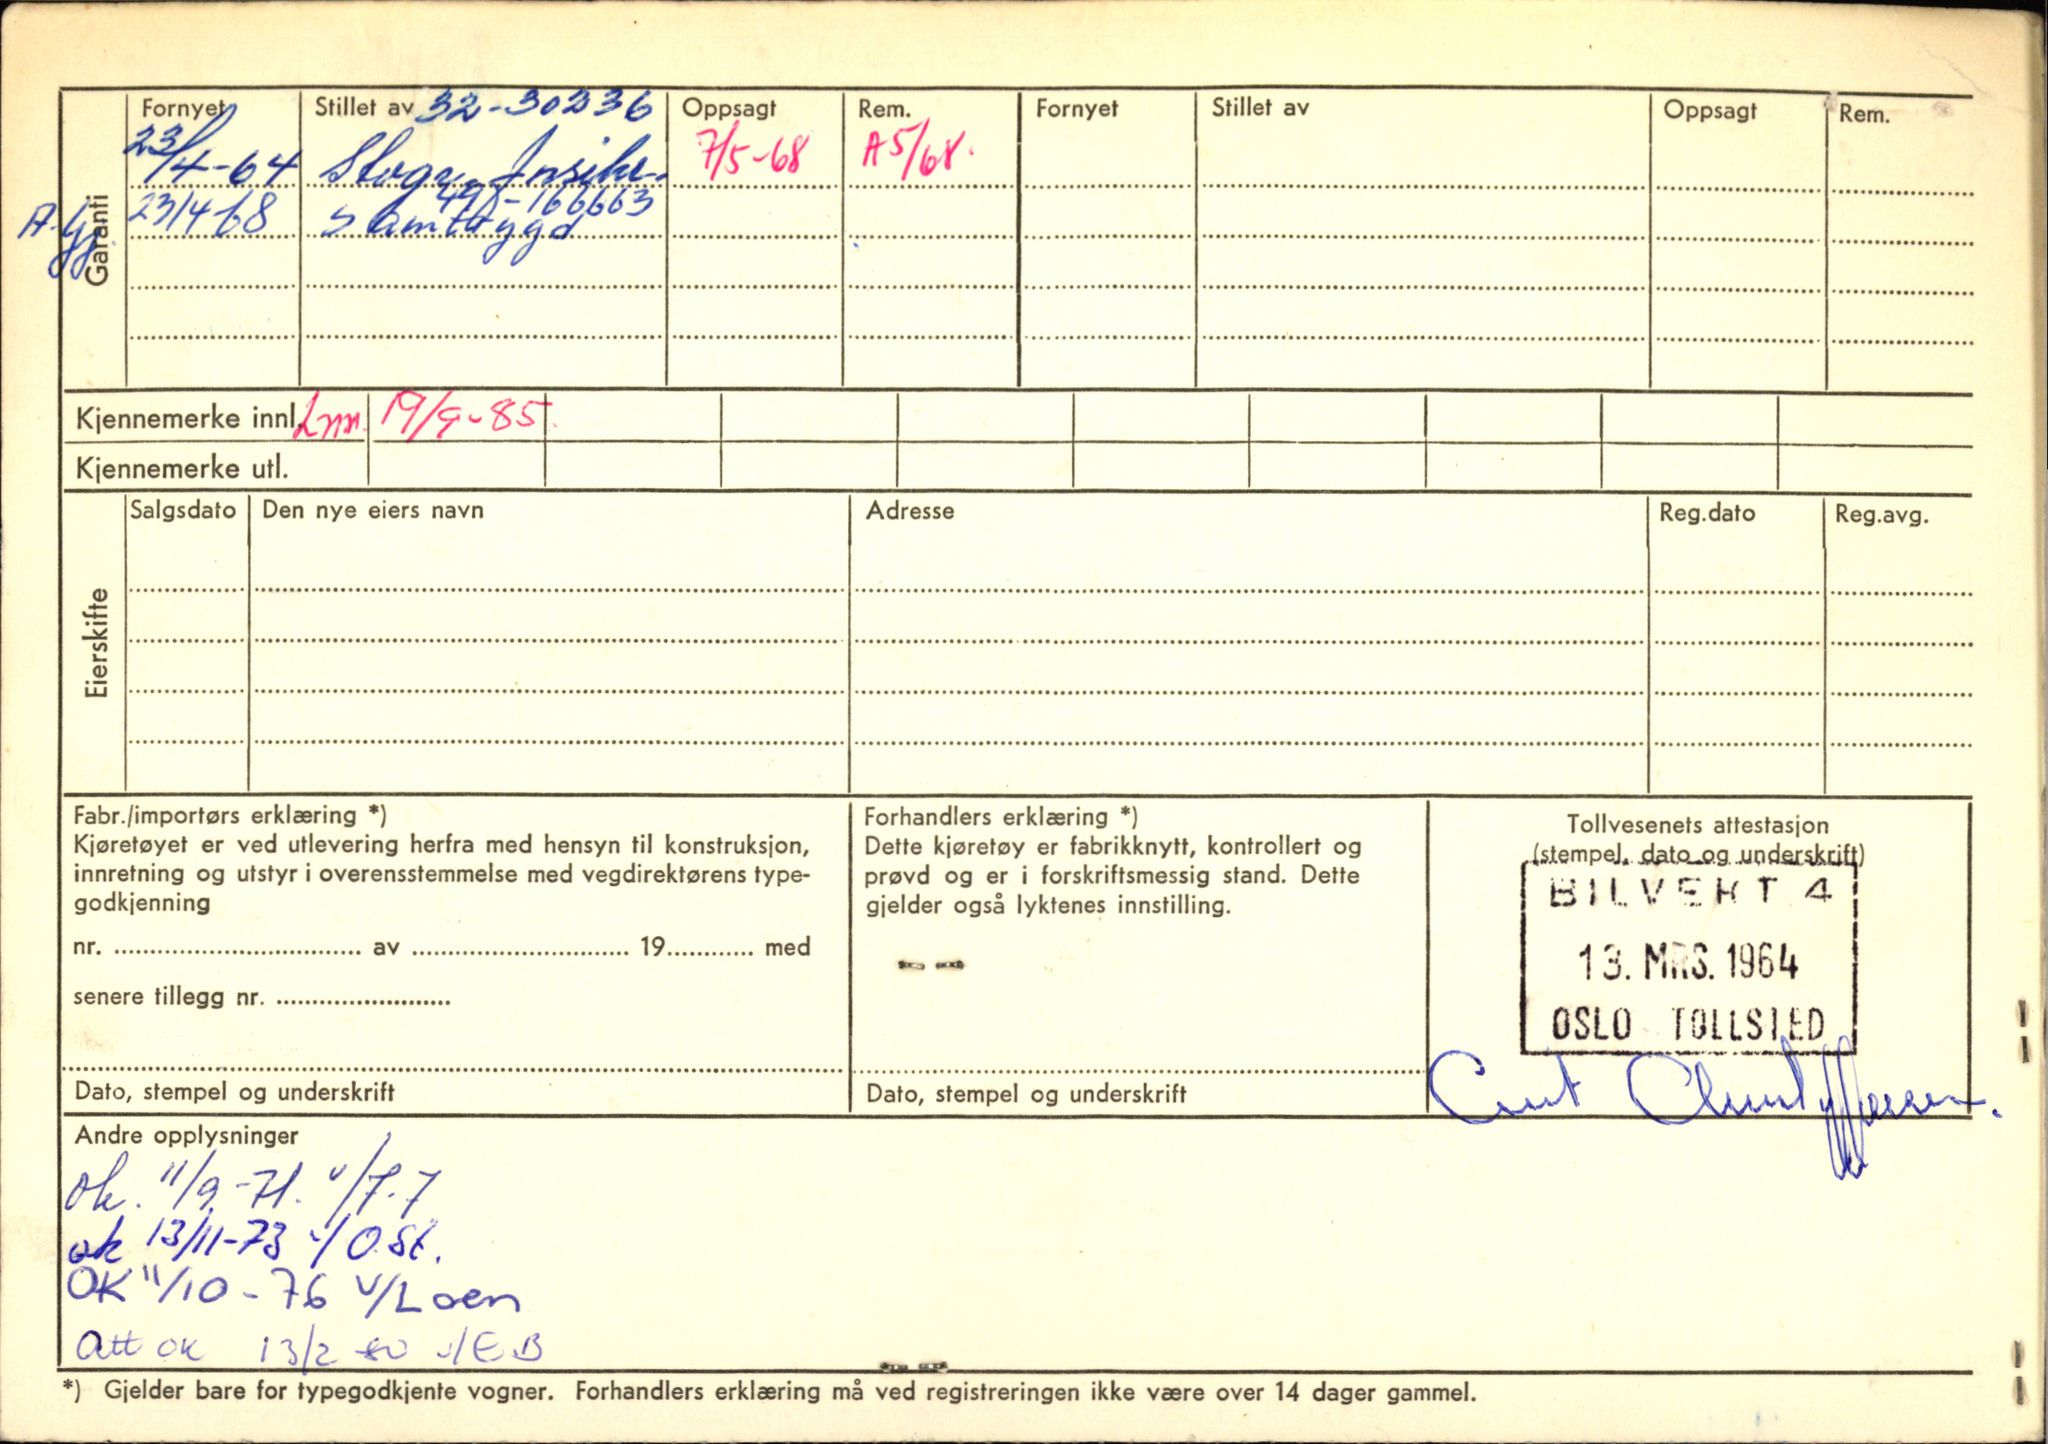 Garanti
Fornyet Stillet av 32-30236 Oppsagt Rem. Fornyet Stillet av Oppsagt Rem.
23/4-64 7/5-68 A5/68.
498-166663
23/4-68 Samtrygd
Kjennemerke innl. 19/9-85.
Kjennemerke utl.
Eierskifte
Salgsdato Den nye eiers navn Adresse Reg.dato Reg.avg.
Fabr./importørs erklæring *)
Kjøretøyet er ved utlevering herfra med hensyn til konstruksjon,
innretning og utstyr i overensstemmelse med vegdirektørens type-
godkjenning
nr. ........ av ........ 19........ med
senere tillegg nr. ........
Dato, stempel og underskrift
Forhandlers erklæring *)
Dette kjøretøy er fabrikknytt, kontrollert og
prøvd og er i forskriftsmessig stand. Dette
gjelder også lyktenes innstilling.
Dato, stempel og underskrift
Tollvesenets attestasjon
(stempel, dato og underskrift)
BILVERT 4
13. MRS. 1964
OSLO TOLLSTED
Andre opplysninger
ok. 11/9-71. v/
ok 13/11-73 v/O.St.
OK 11/10-76 v/Loen
Att ok 13/2 80 v/E.B
*) Gjelder bare for typegodkjente vogner. Forhandlers erklæring må ved registreringen ikke være over 14 dager gammel.